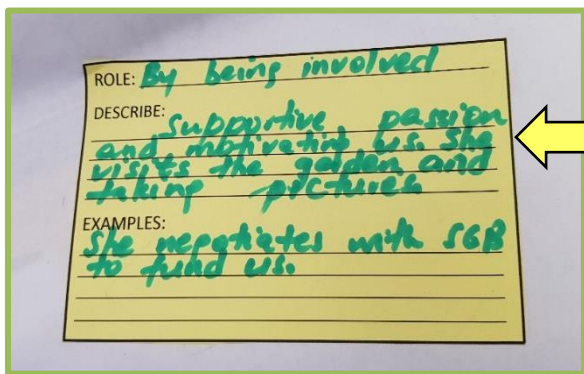 ROLE: By being involved
DESCRIBE:
Supportive passion
and motivating us. She
visits the garden and
taking pictures
EXAMPLES:
She negotiates with SGB
to fund us.